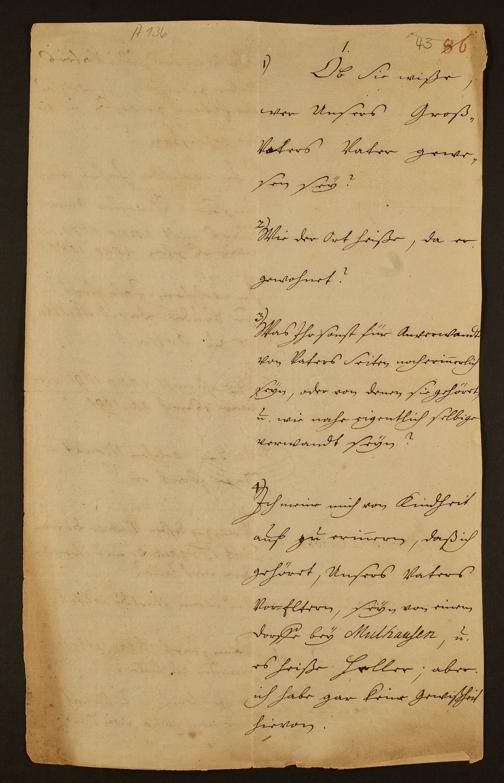 A 136
43 86
1.
1) Ob Sie wiße,
wer Unsers Groß-
Vaters Vater gewe-
sen seÿ?
2) Wie der Ort heiße, da er
gewohnet?
3) Was Ihr sonst für Anverwandte
von Vaters Seiten noch erinnerlich
seÿn, oder von denen sie gehöret,
u. wie nahe eigentlich selbige
verwandt seÿn?
4) Ich meine mich von Kindheit
auf zu erinnern, daß ich
gehöret, Unsers Vaters
VorEltern, seÿn von einem
Dorffe beÿ Mulhausen, u.
es heiße Holler; aber
ich habe gar keine Gewißheit
hievon.